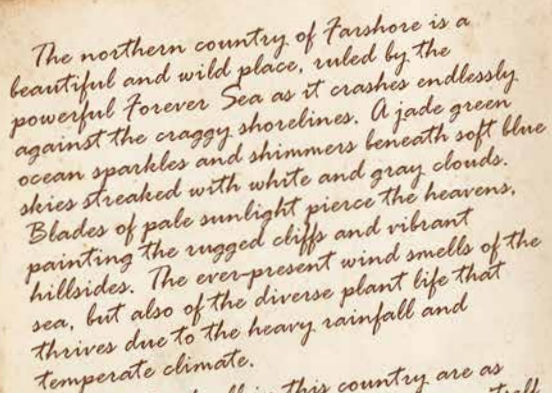 The northern country of Farshore is a
beautiful and wild place, ruled by the
powerful Forever Sea as it crashes endlessly
against the craggy shorelines. A jade green
ocean sparkles and shimmers beneath soft blue
skies streaked with white and gray clouds.
Blades of pale sunlight pierce the heavens,
painting the rugged cliffs and vibrant
hillsides. The ever-present wind smells of the
sea, but also of the diverse plant life that
thrives due to the heavy rainfall and
temperate climate.
this country are as